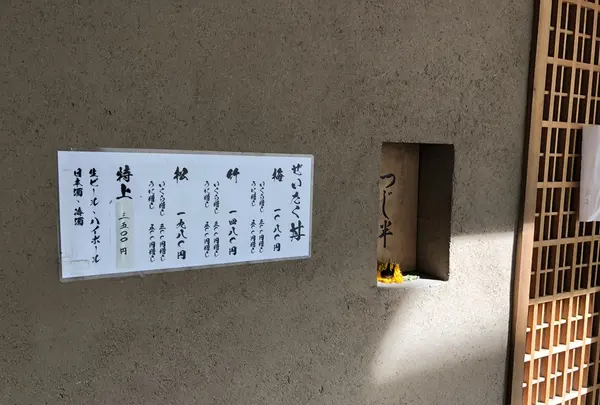 つじ半
ぜいたく丼
梅 一〇八〇円
いくら増し 五〇〇円増し
うに増し 五〇〇円増し
竹 一四八〇円
いくら増し 五〇〇円増し
うに増し 五〇〇円増し
松 一九八〇円
いくら増し 五〇〇円増し
うに増し 五〇〇円増し
特上 三五〇〇円
生ビール・ハイボール
日本酒・焼酒